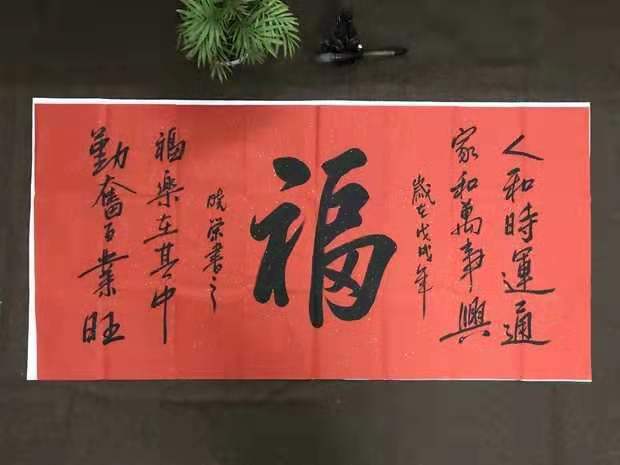 人和時運通
家和萬事興
歲在戊戌年
福
曉榮書之
福樂在其中
勤奮百業旺